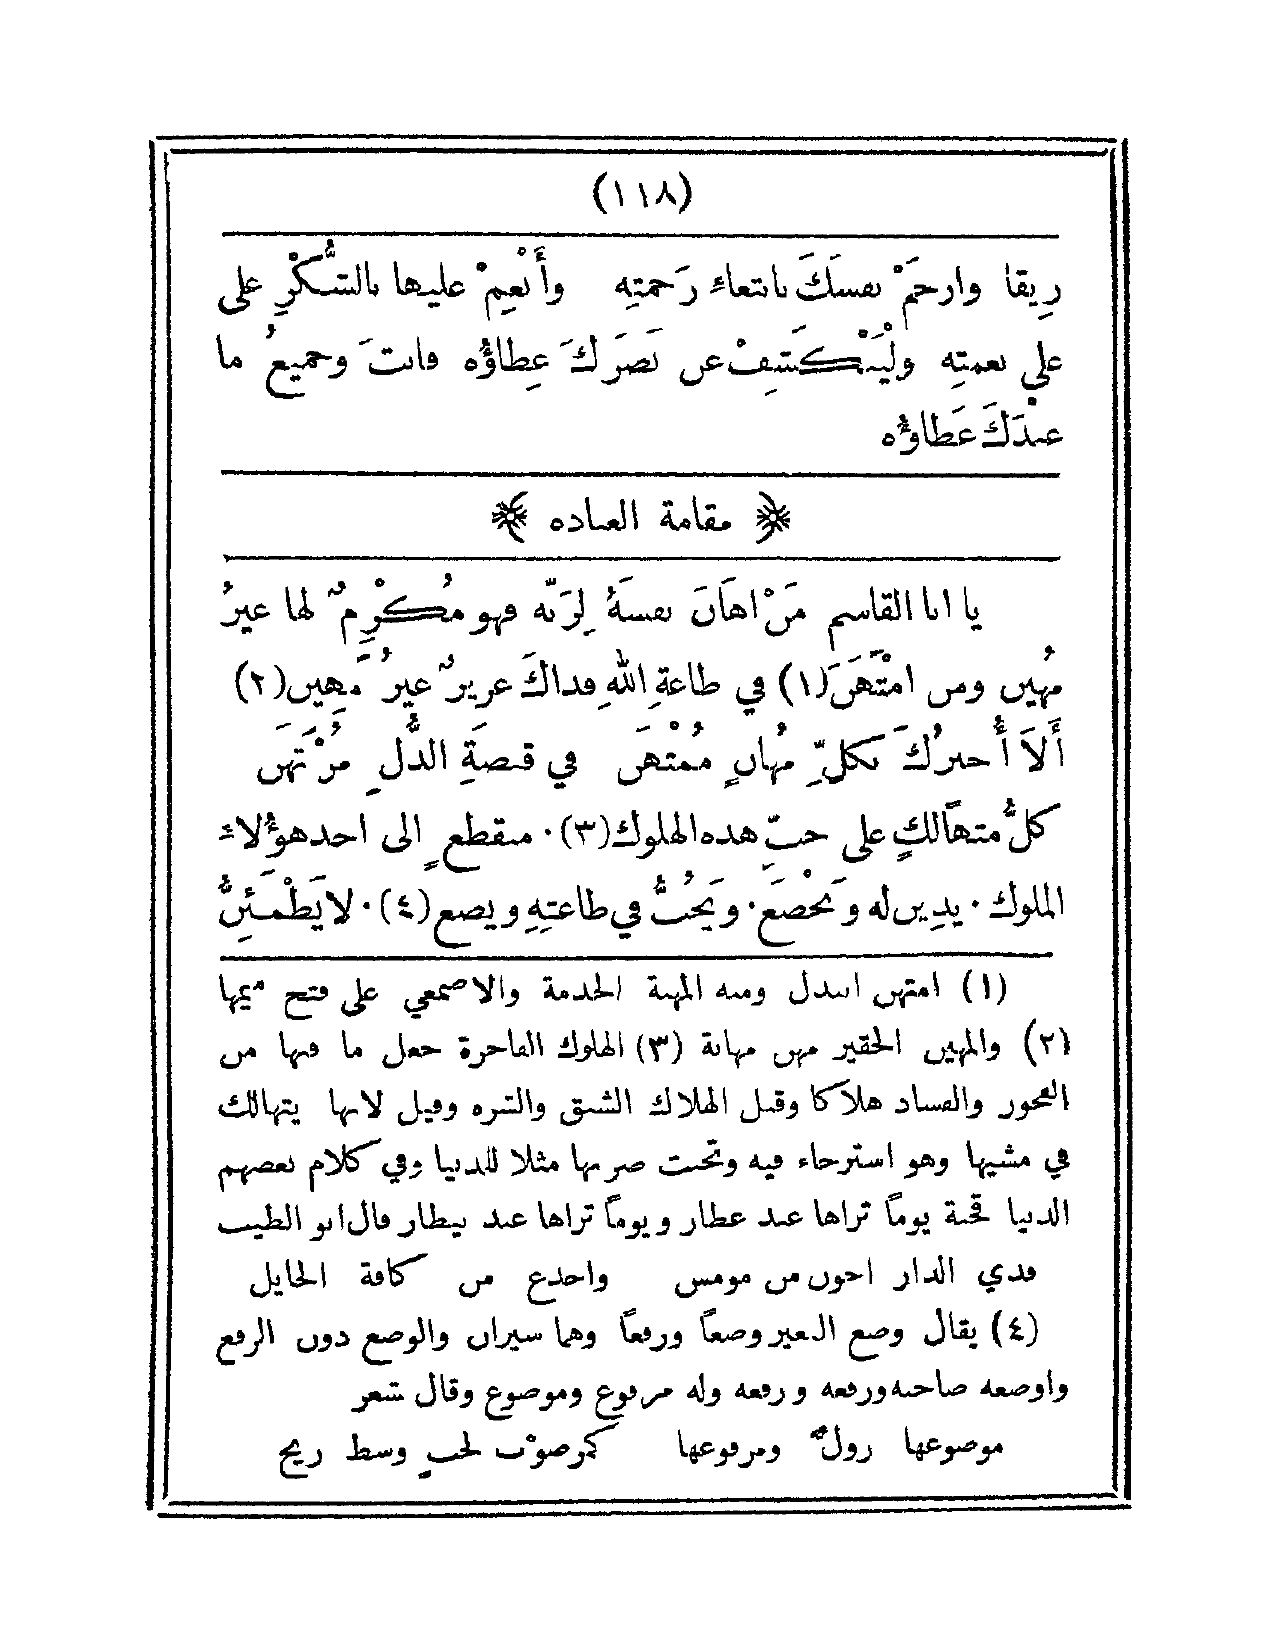 (١١٨)
ريقا وارحَمْ نفسَكَ بابتغاءِ رَحمتِهِ وأَنْعِمْ عليها بالشُّكْرِ على
على نعمتِهِ ولْيَنْكَشِفْ عن بَصَرِكَ غِطاؤُه فانتَ وجميعُ ما
عندَكَ عَطاؤُه
﴿ مقامة العباده ﴾
يا ابا القاسم مَنْ اهَانَ نفسَهُ لِرَبّه فهو مُكْرِمٌ لها غيرُ
مُهينٍ ومن امتَهَنَ(١) في طاعةِ اللهِ فذاكَ عزيزٌ غيرُ مَهِين(٢)
أَلَا أُخبرُكَ بكلِّ مُهانٍ مُمْتهَن في قبضةِ الذُّلِ مُرْتَهَن
كلُّ متهالكٍ على حبِّ هذه الهلوك(٣)٠ منقطعٍ الى احدهؤُلاءِ
الملوك ٠ يدين له وَيَخْضَع٠ ويَخُبُّ في طاعتِهِ ويضع(٤)٠ لا يَطْمَئِنُّ
(١) امتهن ابتذل ومنه المهنة الخدمة والاصمعي على فتح ميمها
(٢) والمهين الحقير مهن مهانة (٣) الهلوك الفاجرة جعل ما فيها من
الفجور والفساد هلاكا وقيل الهلاك الشبق والشره وقيل لانها يتهالك
في مشيها وهو استرخاء فيه وتحت ضربها مثلا للدنيا وفي كلام بعضهم
الدنيا قحبة يوماً تراها عند عطار ويوماً تراها عند بيطار قال ابو الطيب
فذي الدار اخون من مومس واخدع من كافة الحابل
(٤) يقال وضع البعير وضعاً ورفعاً وهما سيران والوضع دون الرفع
واوضعه صاحبه ورفعه ورفعه وله مرفوع وموضوع وقال شعر
موضوعها زولٌ ومرفوعها كمرصوْب لجبٍ وسط ريح